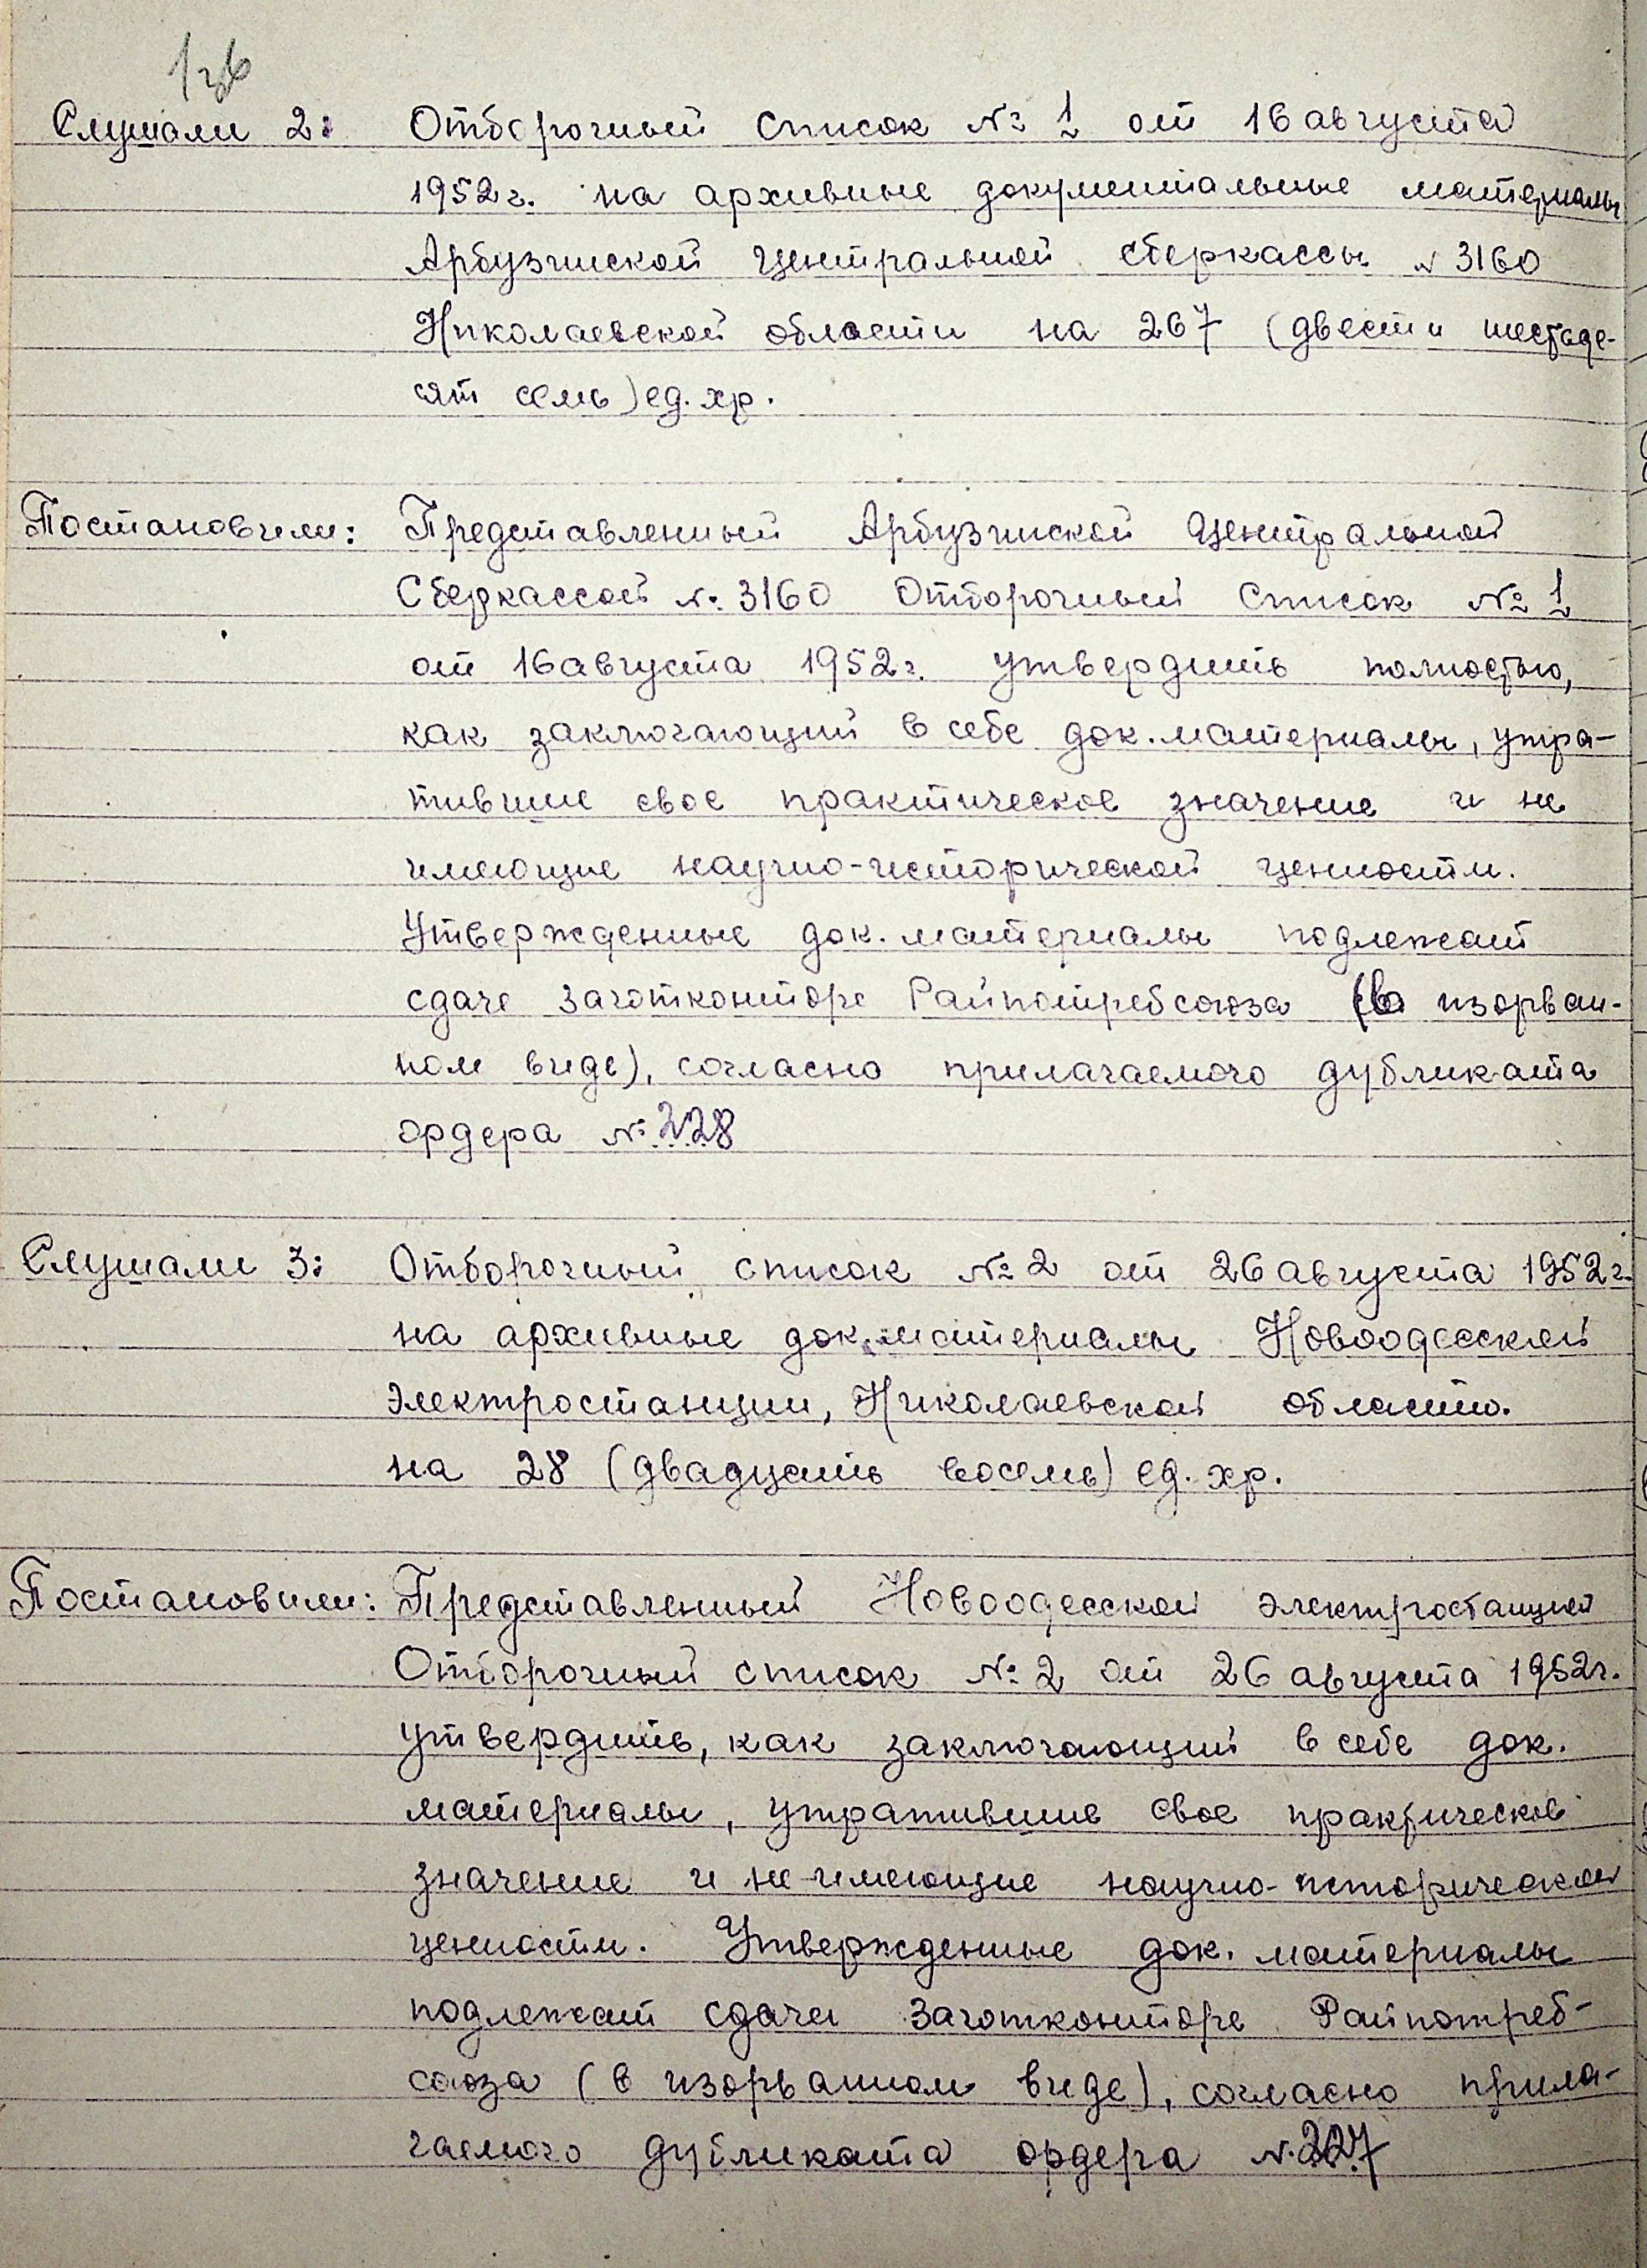 Слушали 2: Отборочный список № 1 от 16 августа
1952 г. на архивные документальные материалы
Арбузинской Центральной сберкассы № 3160
Николаевской области на 267 (двести шестьде-
сят семь) ед. хр.
Постановили: Представленный Арбузинской Центральной
Сберкассой № 3160 Отборочный Список № 1
от 16 августа 1952 г. утвердить полностью,
как заключающий в себе док. материалы, утра-
тившие свое практическое значение и не
имеющие научно-исторической ценности.
Утвержденные док. материалы подлежат
сдаче Заготконторе Райпотребсоюза (в изорван-
ном виде), согласно прилагаемого дубликата
ордера № 228
Слушали 3: Отборочный список № 2 от 26 августа 1952 г.
на архивные док. материалы Новоодесской
электростанции, Николаевской области.
на 28 (двадцать восемь) ед. хр.
Постановили: Представленный Новоодесской электростанцией
Отборочный список № 2 от 26 августа 1952 г.
утвердить, как заключающий в себе док.
материалы, утратившие свое практическое
значение и не имеющие научно-исторической
ценности. Утвержденные док. материалы
подлежат сдаче Заготконторе Райпотреб-
союза (в изорванном виде), согласно прила-
гаемого дубликата ордера № 227